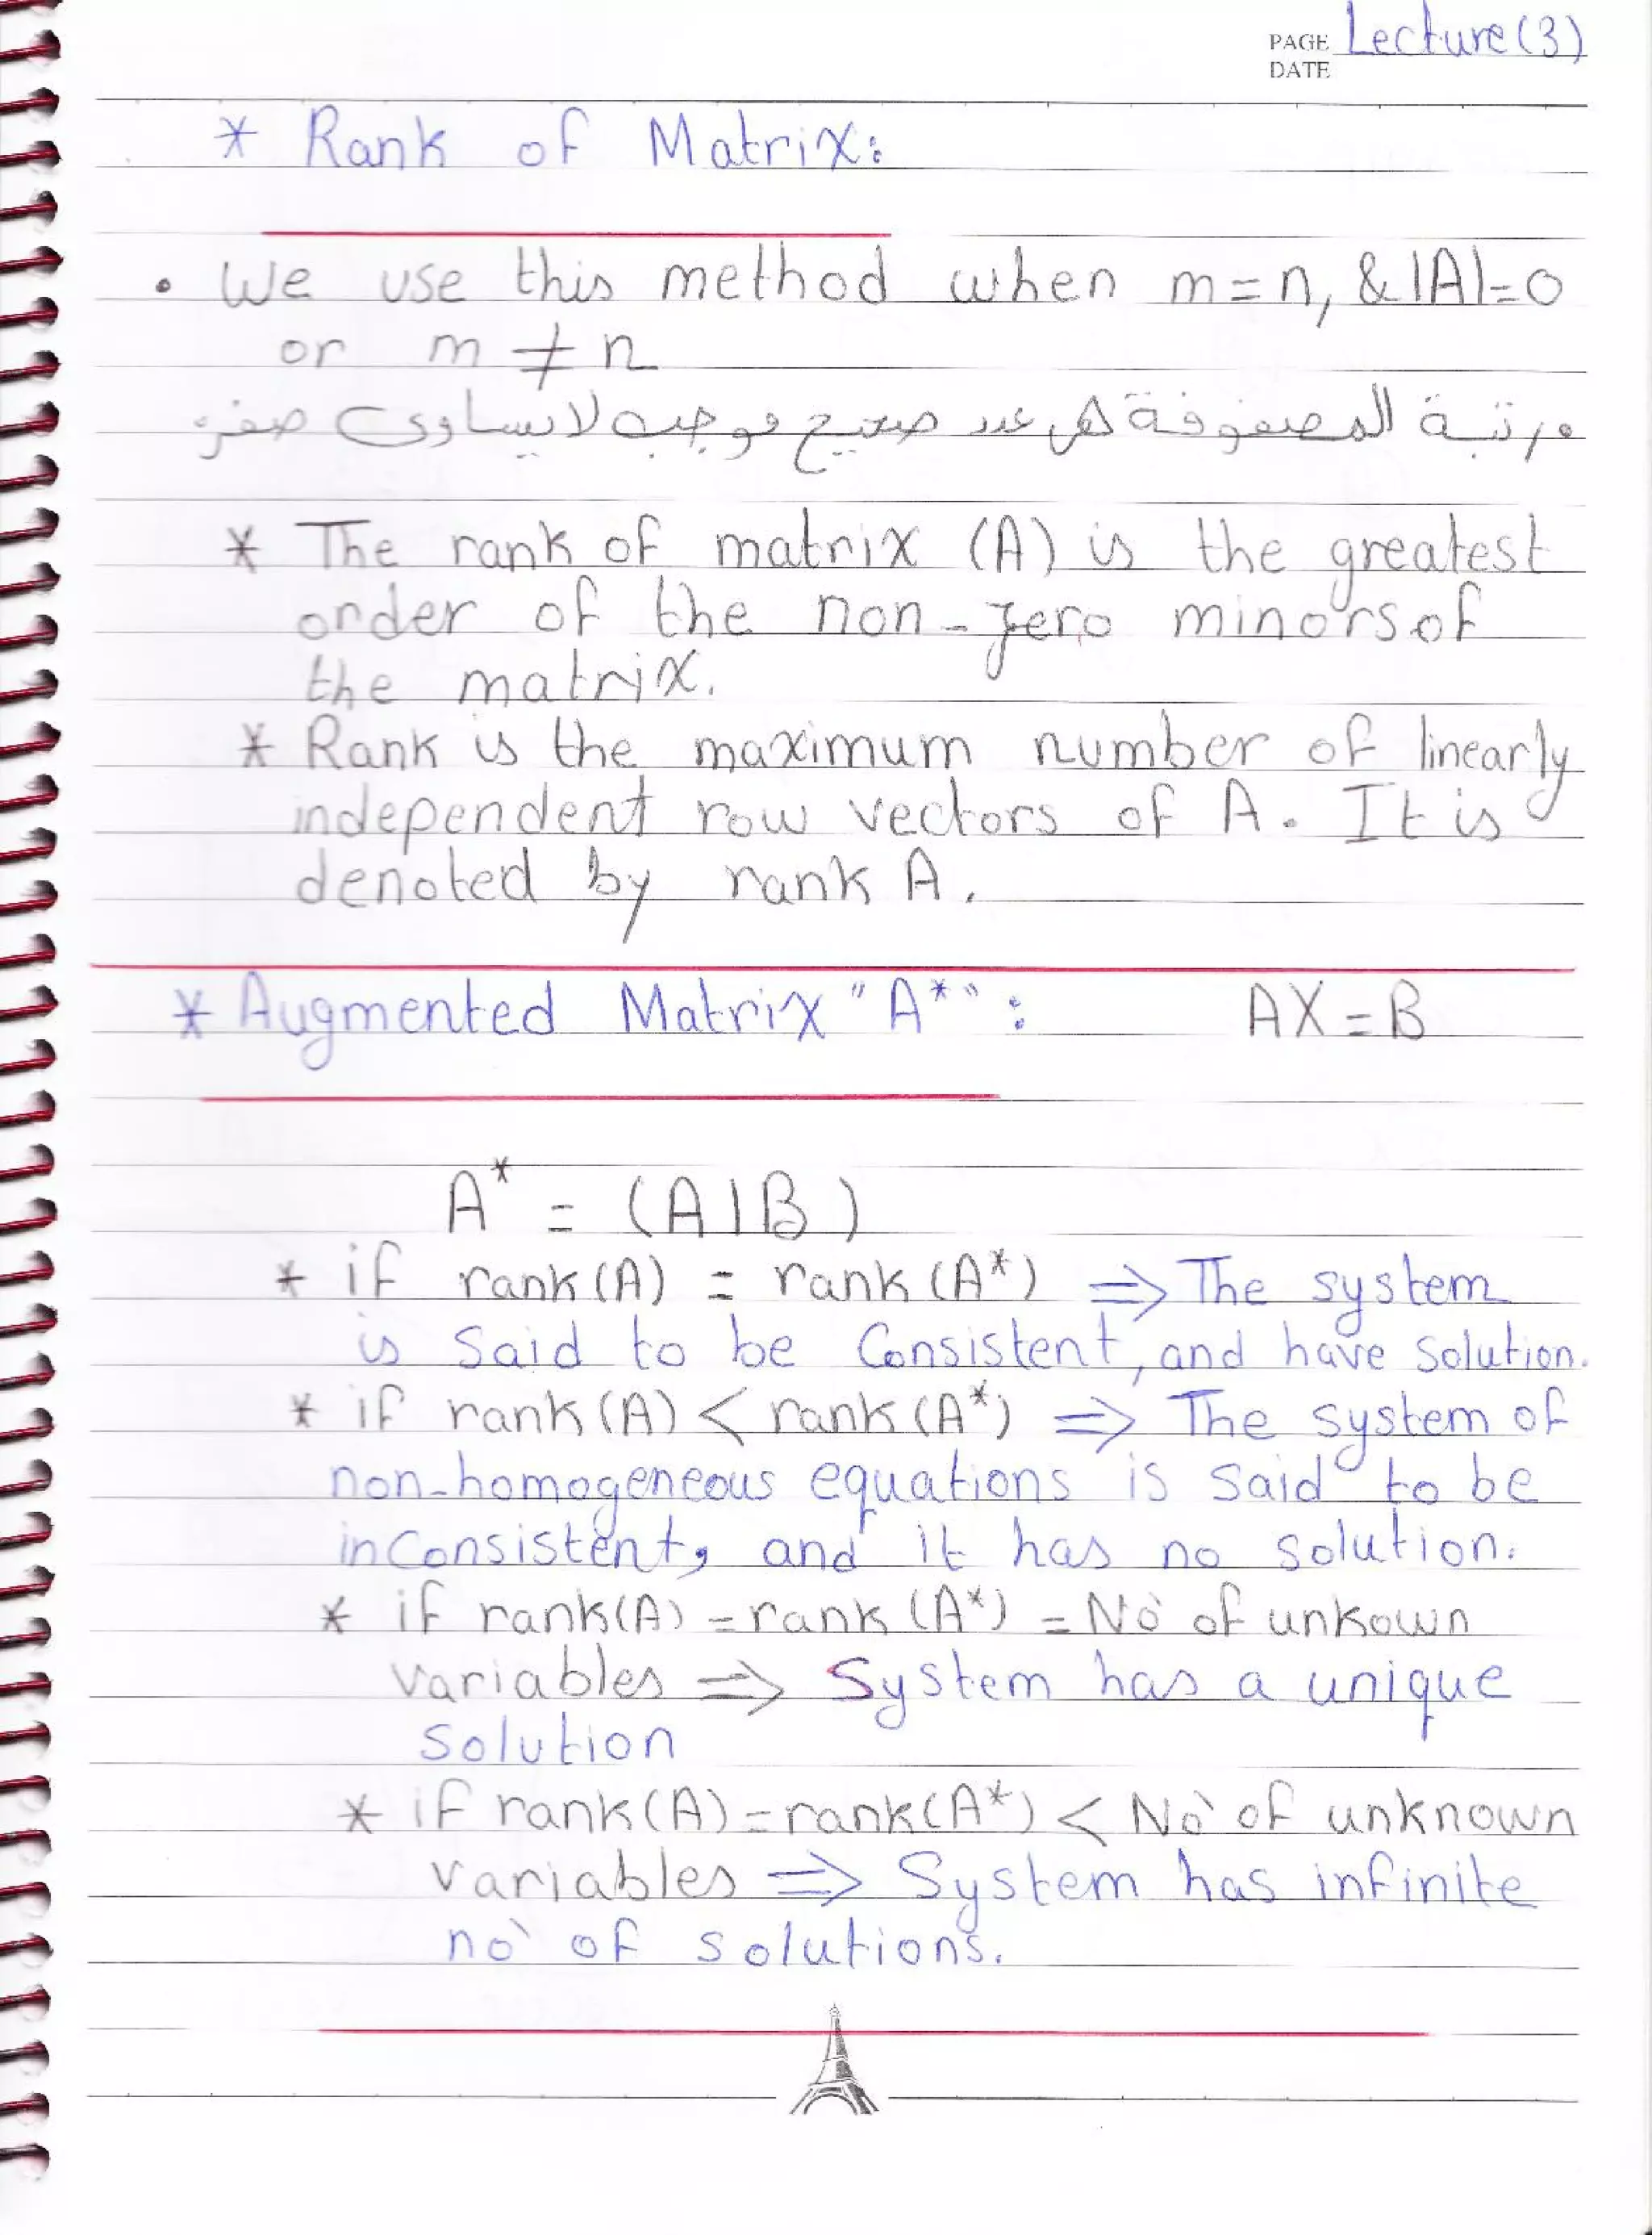 PAGE Lecture (3)
DATE
* Rank of Matrix:
• We use this method when m = n, & |A| = 0
or m ≠ n
مرتبة المصفوفة هى عدد صحيح موجب لا يساوى صفر
* The rank of matrix (A) is the greatest
order of the non-zero minors of
the matrix.
* Rank is the maximum number of linearly
independent row vectors of A. It is
denoted by rank A.
* Augmented Matrix "A*" : AX = B
A* = (A|B)
* if rank (A) = rank (A*) ⇒ The system
is Said to be Consistent, and have solution.
* if rank (A) < rank (A*) ⇒ The system of
non-homogeneous equations is said to be
inConsistent, and it has no solution.
* if rank(A) = rank (A*) = No of unkown
variables ⇒ System has a unique
Solution
* if rank(A) = rank(A*) < No of unknown
variables ⇒ System has infinite
no of solutions.